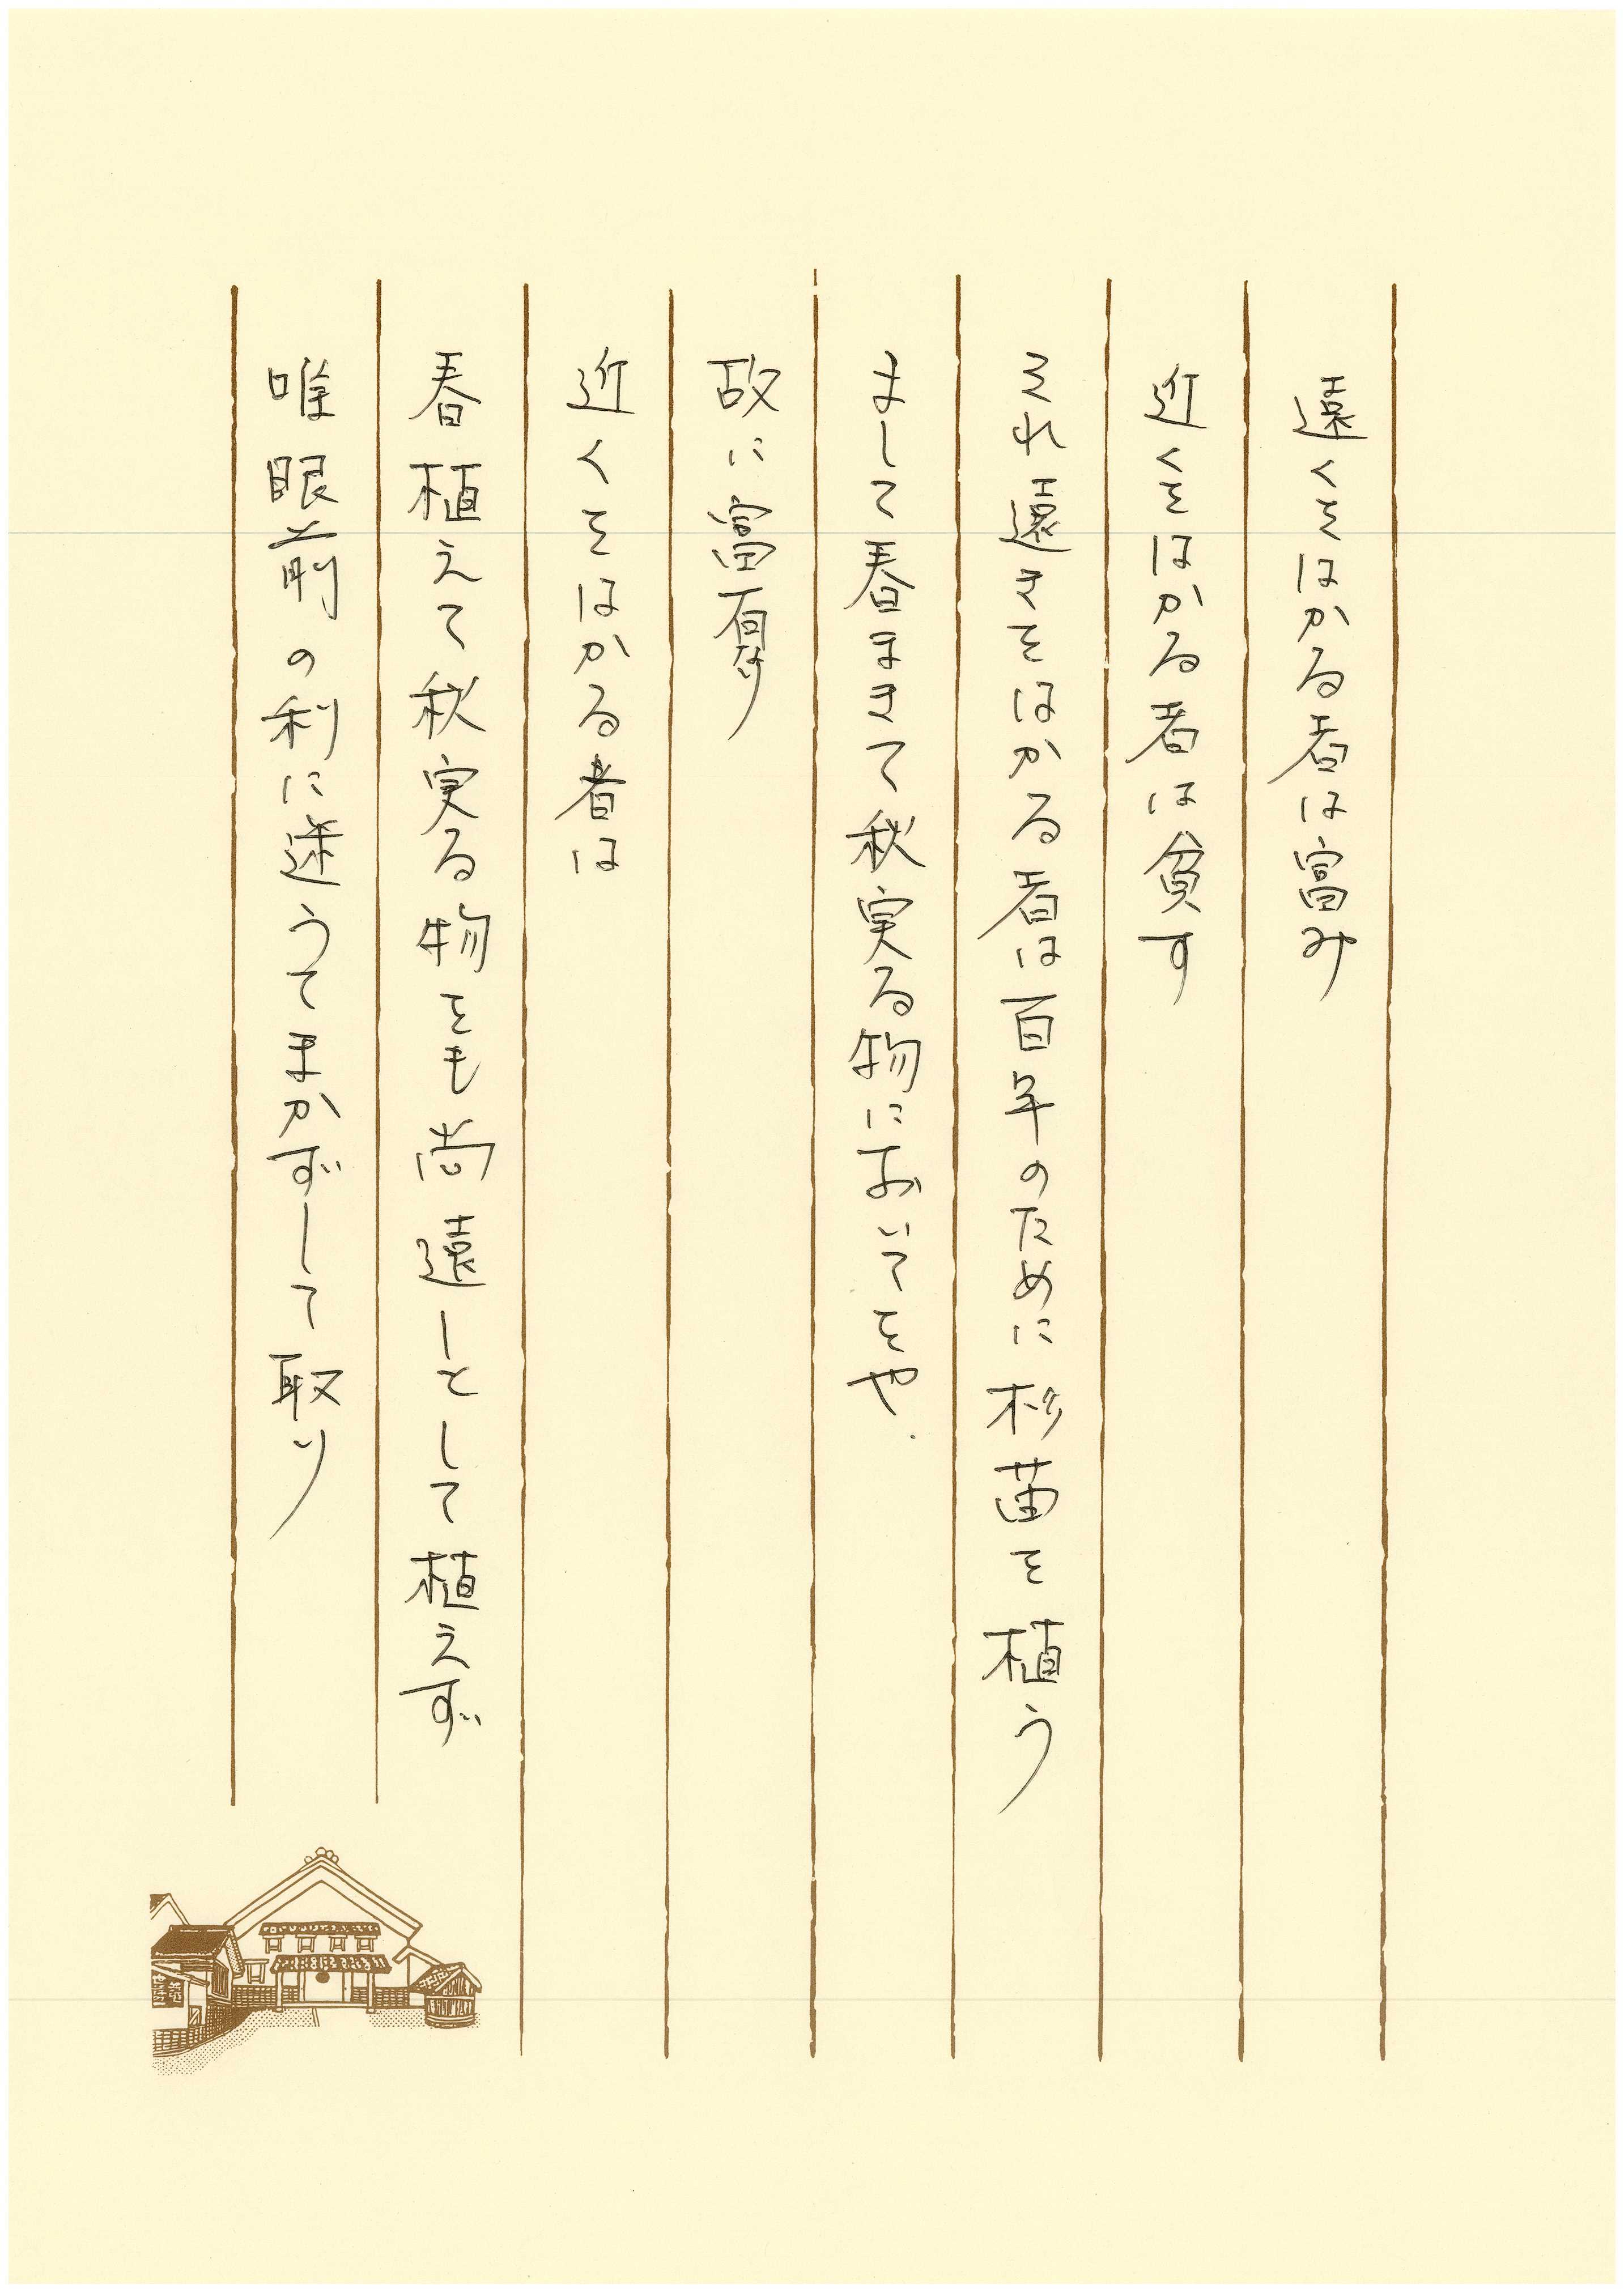 遠くをはかる者は富み
近くをはかる者は貧す
それ遠きをはかる者は百年のために杉苗を植う
まして春まきて秋実る物においてをや.
故に富有なり
近くをはかる者は
春植えて秋実る物をも尚遠しとして植えず
唯眼前の利に迷うてまかずして取り